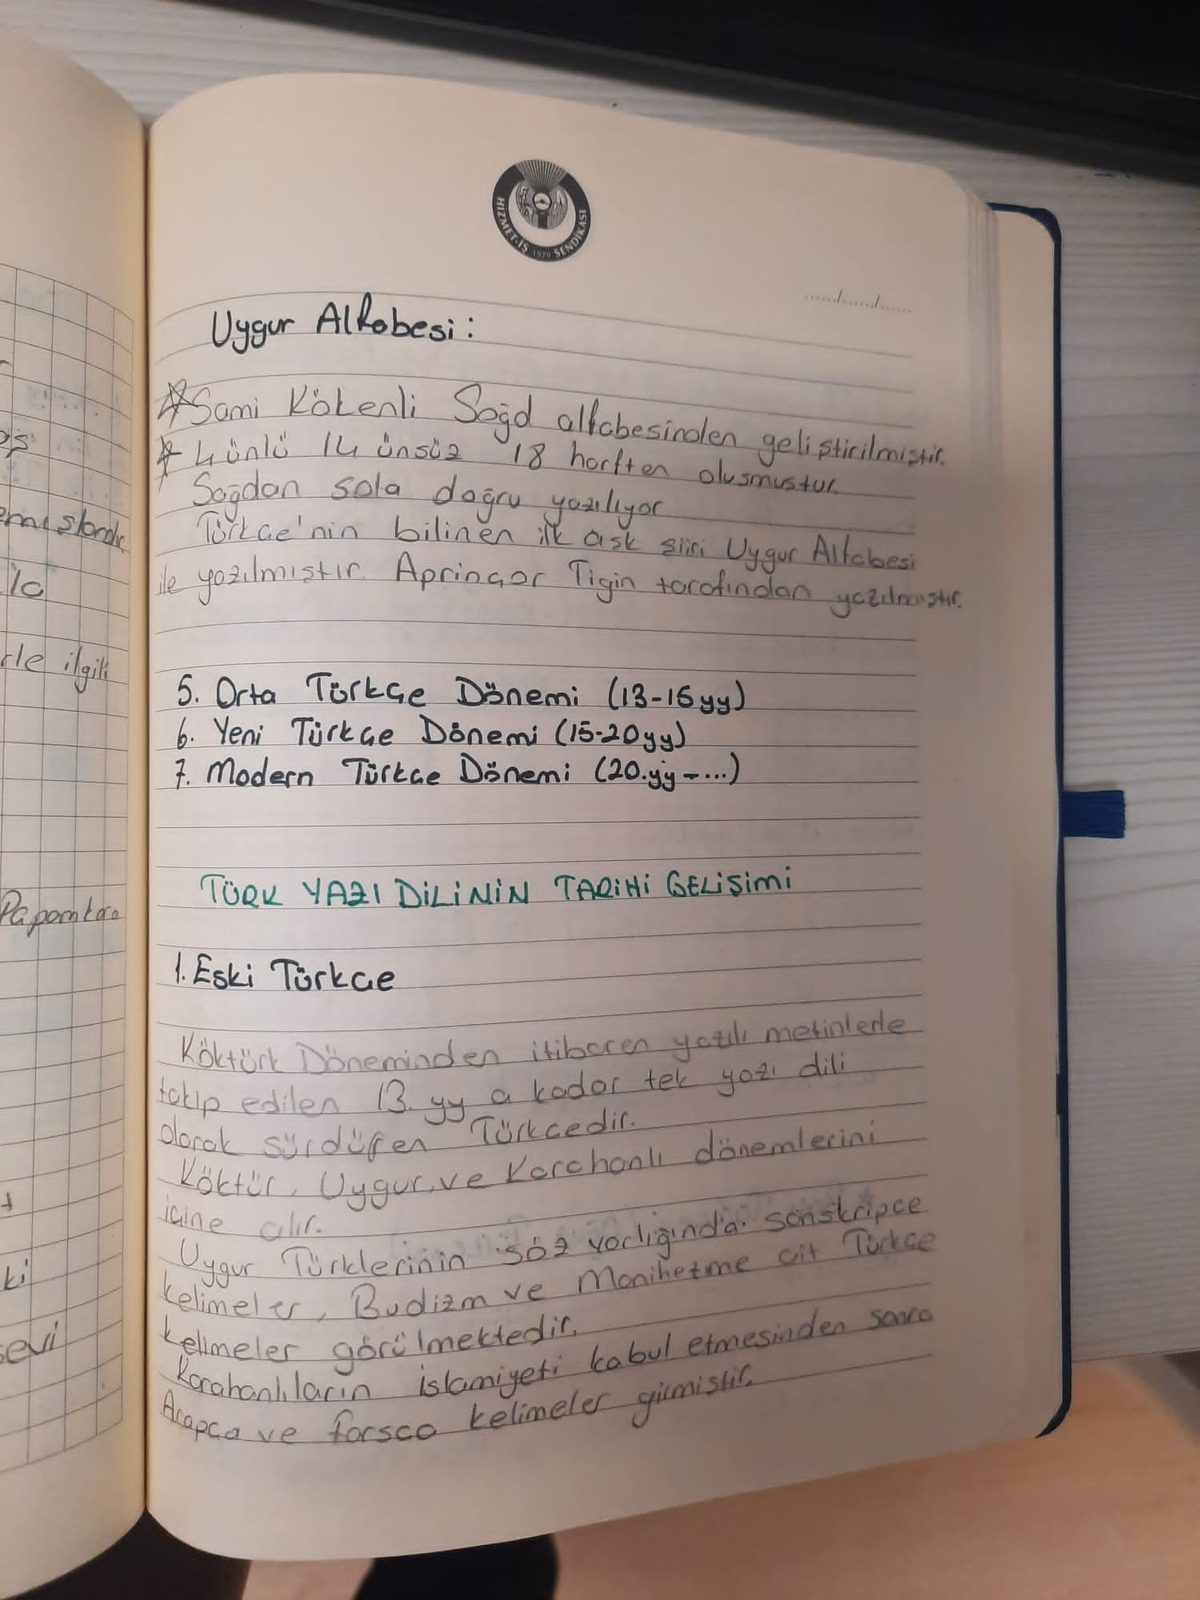 HİZMET-İŞ SENDİKASI 1979
....../....../......
Uygur Alfabesi:
Sami Kökenli Soğd alfabesinden geliştirilmiştir.
4 ünlü 14 ünsüz 18 harften oluşmuştur.
Sağdan sola doğru yazılıyor
Türkçe'nin bilinen ilk aşk şiiri Uygur Alfabesi
ile yazılmıştır. Aprinçor Tigin tarafından yazılmıştır.
5. Orta Türkçe Dönemi (13-15yy)
6. Yeni Türkçe Dönemi (15-20yy)
7. Modern Türkçe Dönemi (20.yy-...)
TÜRK YAZI DİLİNİN TARİHİ GELİŞİMİ
1. Eski Türkçe
Köktürk Döneminden itibaren yazılı metinlerle
takip edilen 13. yy a kadar tek yazı dili
olarak sürdüren Türkçedir.
Köktür, Uygur, ve Karahanlı dönemlerini
içine alır.
Uygur Türklerinin söz varlığında sanskripçe
kelimeler, Budizm ve Maniheizme ait Türkçe
kelimeler görülmektedir.
Karahanlıların İslamiyeti kabul etmesinden sonra
Arapça ve farsça kelimeler girmiştir.
ilgili